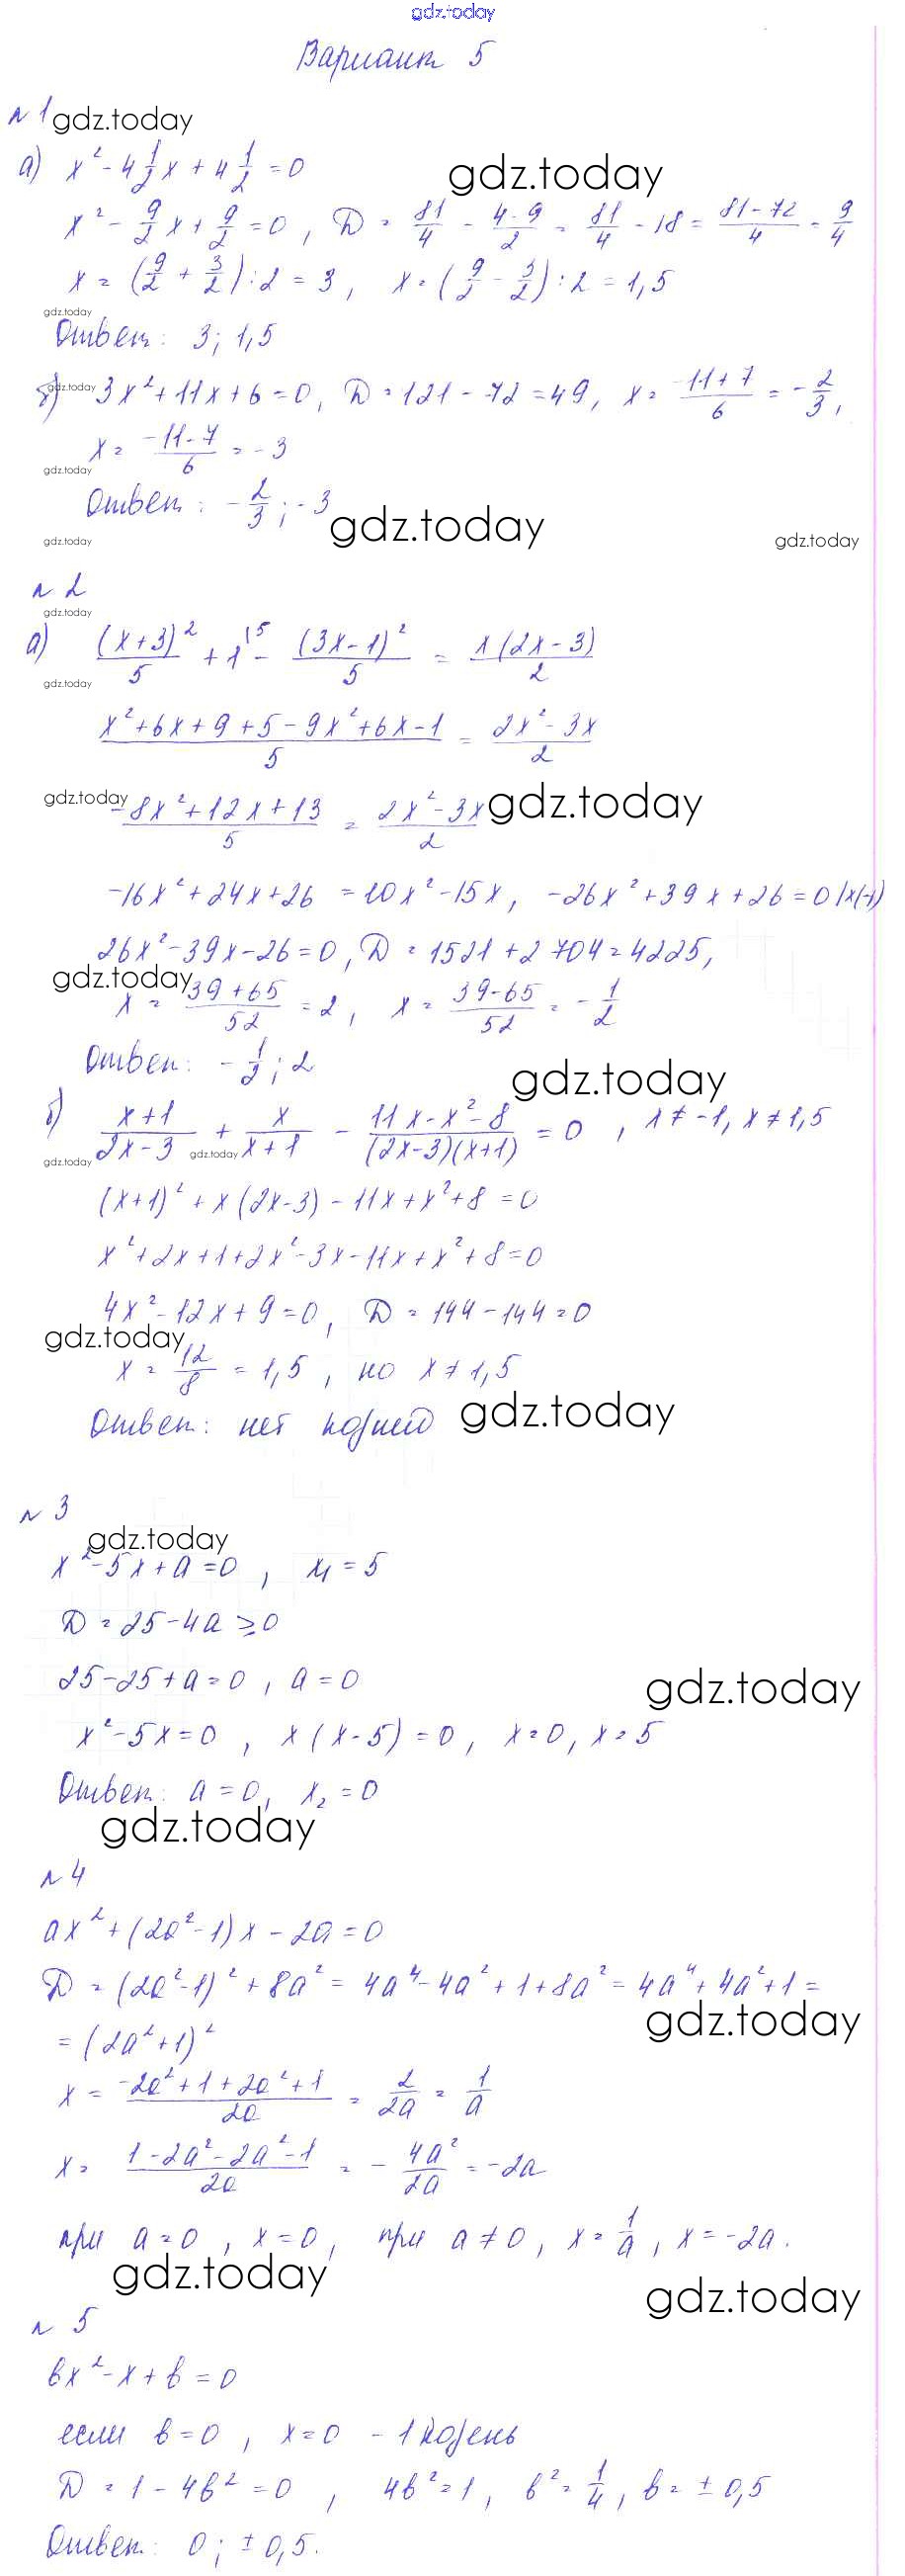 gdz.today
Вариант 5
№1 gdz.today
а) x² - 4 1/2 x + 4 1/2 = 0
gdz.today
x² - 9/2 x + 9/2 = 0, D = 81/4 - 4·9/2 = 81/4 - 18 = 81-72/4 = 9/4
x = (9/2 + 3/2):2 = 3, x = (9/2 - 3/2):2 = 1,5
gdz.today
Ответ: 3; 1,5
б) gdz.today 3x² + 11x + 6 = 0, D = 121 - 72 = 49, x = -11+7/6 = -2/3,
x = -11-7/6 = -3
gdz.today
Ответ: -2/3; -3
gdz.today
gdz.today
gdz.today
№2
gdz.today
а) (x+3)²/5 + 1^(5 - (3x-1)²/5 = x(2x-3)/2
gdz.today
x²+6x+9+5-9x²+6x-1/5 = 2x²-3x/2
gdz.today
-8x²+12x+13/5 = 2x²-3x/2
gdz.today
-16x²+24x+26 = 10x²-15x, -26x²+39x+26=0 |x(-1)
26x²-39x-26=0, D = 1521+2704=4225,
gdz.today
x = 39+65/52 = 2, x = 39-65/52 = -1/2
Ответ: -1/2; 2
gdz.today
б) x+1/2x-3 + x/x+1 - 11x-x²-8/(2x-3)(x+1) = 0, x≠-1, x≠1,5
gdz.today gdz.today
(x+1)² + x(2x-3) - 11x+x²+8 = 0
x²+2x+1+2x²-3x-11x+x²+8=0
4x²-12x+9=0, D = 144-144=0
gdz.today
x = 12/8 = 1,5, но x≠1,5
Ответ: нет корней
gdz.today
№3
gdz.today
x²-5x+a=0, x₁=5
D = 25-4a ≥ 0
25-25+a=0, a=0
gdz.today
x²-5x=0, x(x-5)=0, x=0, x=5
Ответ: a=0, x₂=0
gdz.today
№4
ax²+(2a²-1)x-2a=0
D = (2a²-1)²+8a² = 4a⁴-4a²+1+8a² = 4a⁴+4a²+1 =
gdz.today
= (2a²+1)²
x = -2a²+1+2a²+1/2a = 2/2a = 1/a
x = 1-2a²-2a²-1/2a = -4a²/2a = -2a
при a=0, x=0, при a≠0, x=1/a, x=-2a.
gdz.today
gdz.today
№5
bx²-x+b=0
если b=0, x=0 - 1 корень
D = 1-4b²=0, 4b²=1, b²=1/4, b=±0,5
Ответ: 0; ±0,5.